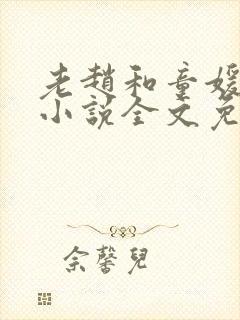 老趙和童媛
小說全文免
佘馨兒